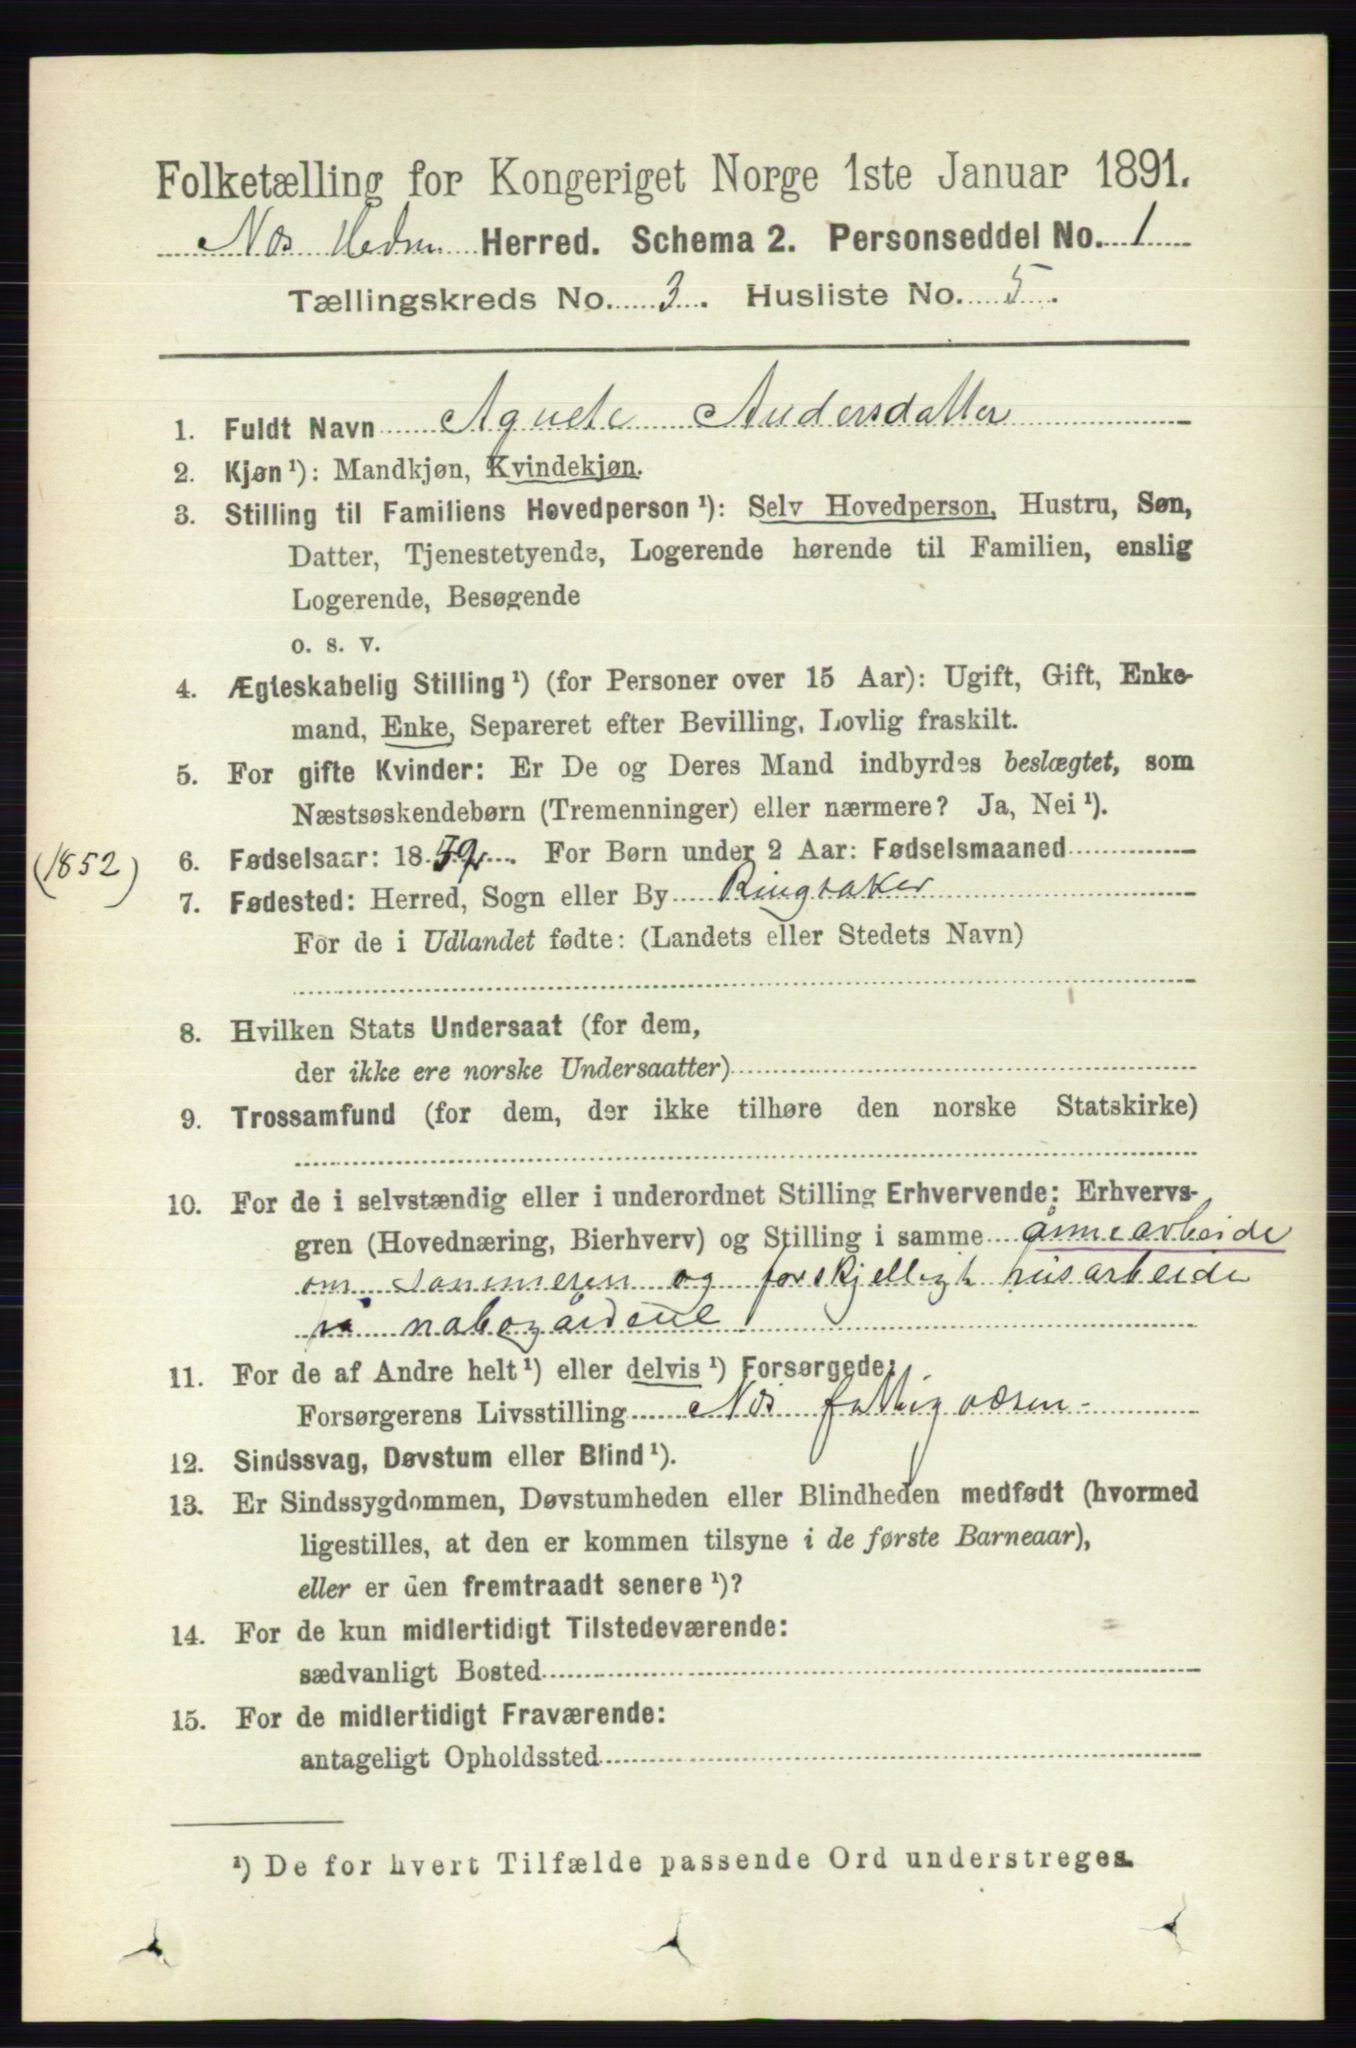 Folketælling for Kongeriget Norge 1ste Januar 1891.
Næs Hedm Herred. Schema 2. Personseddel No. 1
Tællingskreds No. 3. Husliste No. 5.
1. Fuldt Navn Agnete Andersdatter
2. Kjøn ¹): Mandkjøn, Kvindekjøn.
3. Stilling til Familiens Hovedperson ¹): Selv Hovedperson, Hustru, Søn,
Datter, Tjenestetyende, Logerende hørende til Familien, enslig
Logerende, Besøgende
o. s. v.
4. Ægteskabelig Stilling ¹) (for Personer over 15 Aar): Ugift, Gift, Enke-
mand, Enke, Separeret efter Bevilling, Lovlig fraskilt.
5. For gifte Kvinder: Er De og Deres Mand indbyrdes beslægtet, som
Næstsøskendebørn (Tremenninger) eller nærmere? Ja, Nei ¹).
(1852)
6. Fødselsaar: 18 . For Børn under 2 Aar: Fødselsmaaned
7. Fødested: Herred, Sogn eller By Ringsaker
For de i Udlandet fødte: (Landets eller Stedets Navn)
8. Hvilken Stats Undersaat (for dem,
der ikke ere norske Undersaatter)
9. Trossamfund (for dem, der ikke tilhøre den norske Statskirke)
10. For de i selvstændig eller i underordnet Stilling Erhvervende: Erhvervs-
gren (Hovednæring, Bierhverv) og Stilling i samme ånnearbeide
om sommeren og forskjelligt husarbeide
på nabogårdene
11. For de af Andre helt ¹) eller delvis ¹) Forsørgede:
Forsørgerens Livsstilling Næs fattigvæsen
12. Sindssvag, Døvstum eller Blind ¹).
13. Er Sindssygdommen, Døvstumheden eller Blindheden medfødt (hvormed
ligestilles, at den er kommen tilsyne i de første Barneaar),
eller er den fremtraadt senere ¹)?
14. For de kun midlertidigt Tilstedeværende:
sædvanligt Bosted
15. For de midlertidigt Fraværende:
antageligt Opholdssted
¹) De for hvert Tilfælde passende Ord understreges.